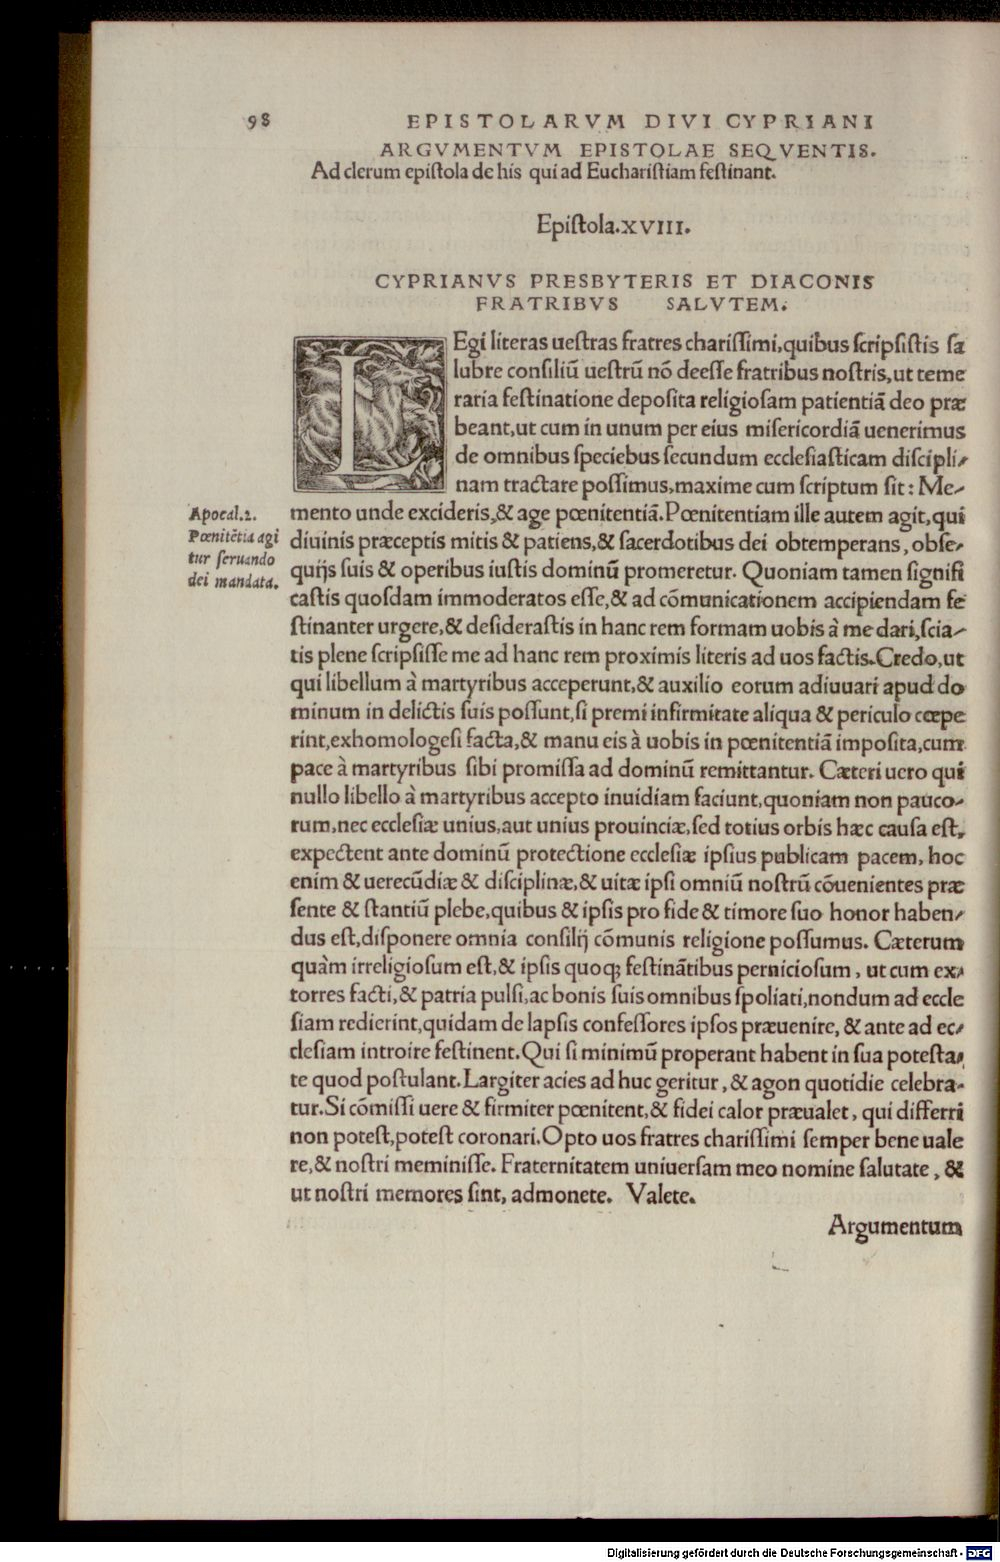 98 EPISTOLARVM DIVI CYPRIANI
ARGVMENTVM EPISTOLAE SEQVENTIS.
Ad clerum epistola de his qui ad Eucharistiam festinant.
Epistola.XVIII.
CYPRIANVS PRESBYTERIS ET DIACONIS
FRATRIBVS SALVTEM.
LEgi literas uestras fratres charissimi,quibus scripsistis sa
lubre consiliū uestrū nō deesse fratribus nostris,ut teme
raria festinatione deposita religiosam patientiā deo præ
beant,ut cum in unum per eius misericordiā uenerimus
de omnibus speciebus secundum ecclesiasticam discipli-
nam tractare possimus,maxime cum scriptum sit: Me-
mento unde excideris,& age pœnitentiā.Pœnitentiam ille autem agit,qui
diuinis præceptis mitis & patiens,& sacerdotibus dei obtemperans, obse-
quijs suis & operibus iustis dominū promeretur. Quoniam tamen signifi
castis quosdam immoderatos esse,& ad cōmunicationem accipiendam fe
stinanter urgere,& desiderastis in hanc rem formam uobis à me dari,scia-
tis plene scripsisse me ad hanc rem proximis literis ad uos factis.Credo,ut
qui libellum à martyribus acceperunt,& auxilio eorum adiuuari apud do
minum in delictis suis possunt,si premi infirmitate aliqua & periculo cœpe
rint,exhomologesi facta,& manu eis à uobis in pœnitentiā imposita,cum
pace à martyribus sibi promissa ad dominū remittantur. Cæteri uero qui
nullo libello à martyribus accepto inuidiam faciunt,quoniam non pauco-
rum,nec ecclesiæ unius,aut unius prouinciæ,sed totius orbis hæc causa est,
expectent ante dominū protectione ecclesiæ ipsius publicam pacem, hoc
enim & uerecūdiæ & disciplinæ,& uitæ ipsi omniū nostrū cōuenientes præ
sente & stantiū plebe,quibus & ipsis pro fide & timore suo honor haben-
dus est,disponere omnia consilij cōmunis religione possumus. Cæterum
quàm irreligiosum est,& ipsis quoq; festinātibus perniciosum, ut cum ex-
torres facti,& patria pulsi,ac bonis suis omnibus spoliati,nondum ad eccle
siam redierint,quidam de lapsis confessores ipsos præuenire, & ante ad ec-
clesiam introire festinent.Qui si minimū properant habent in sua potesta-
te quod postulant.Largiter acies ad huc geritur, & agon quotidie celebra-
tur.Si cōmissi uere & firmiter pœnitent,& fidei calor præualet, qui differri
non potest,potest coronari.Opto uos fratres charissimi semper bene uale
re,& nostri meminisse. Fraternitatem uniuersam meo nomine salutate, &
ut nostri memores sint, admonete. Valete.
Argumentum
Apocal.2.
Pœnitētia agi
tur seruando
dei mandata.
Digitalisierung gefördert durch die Deutsche Forschungsgemeinschaft - DFG